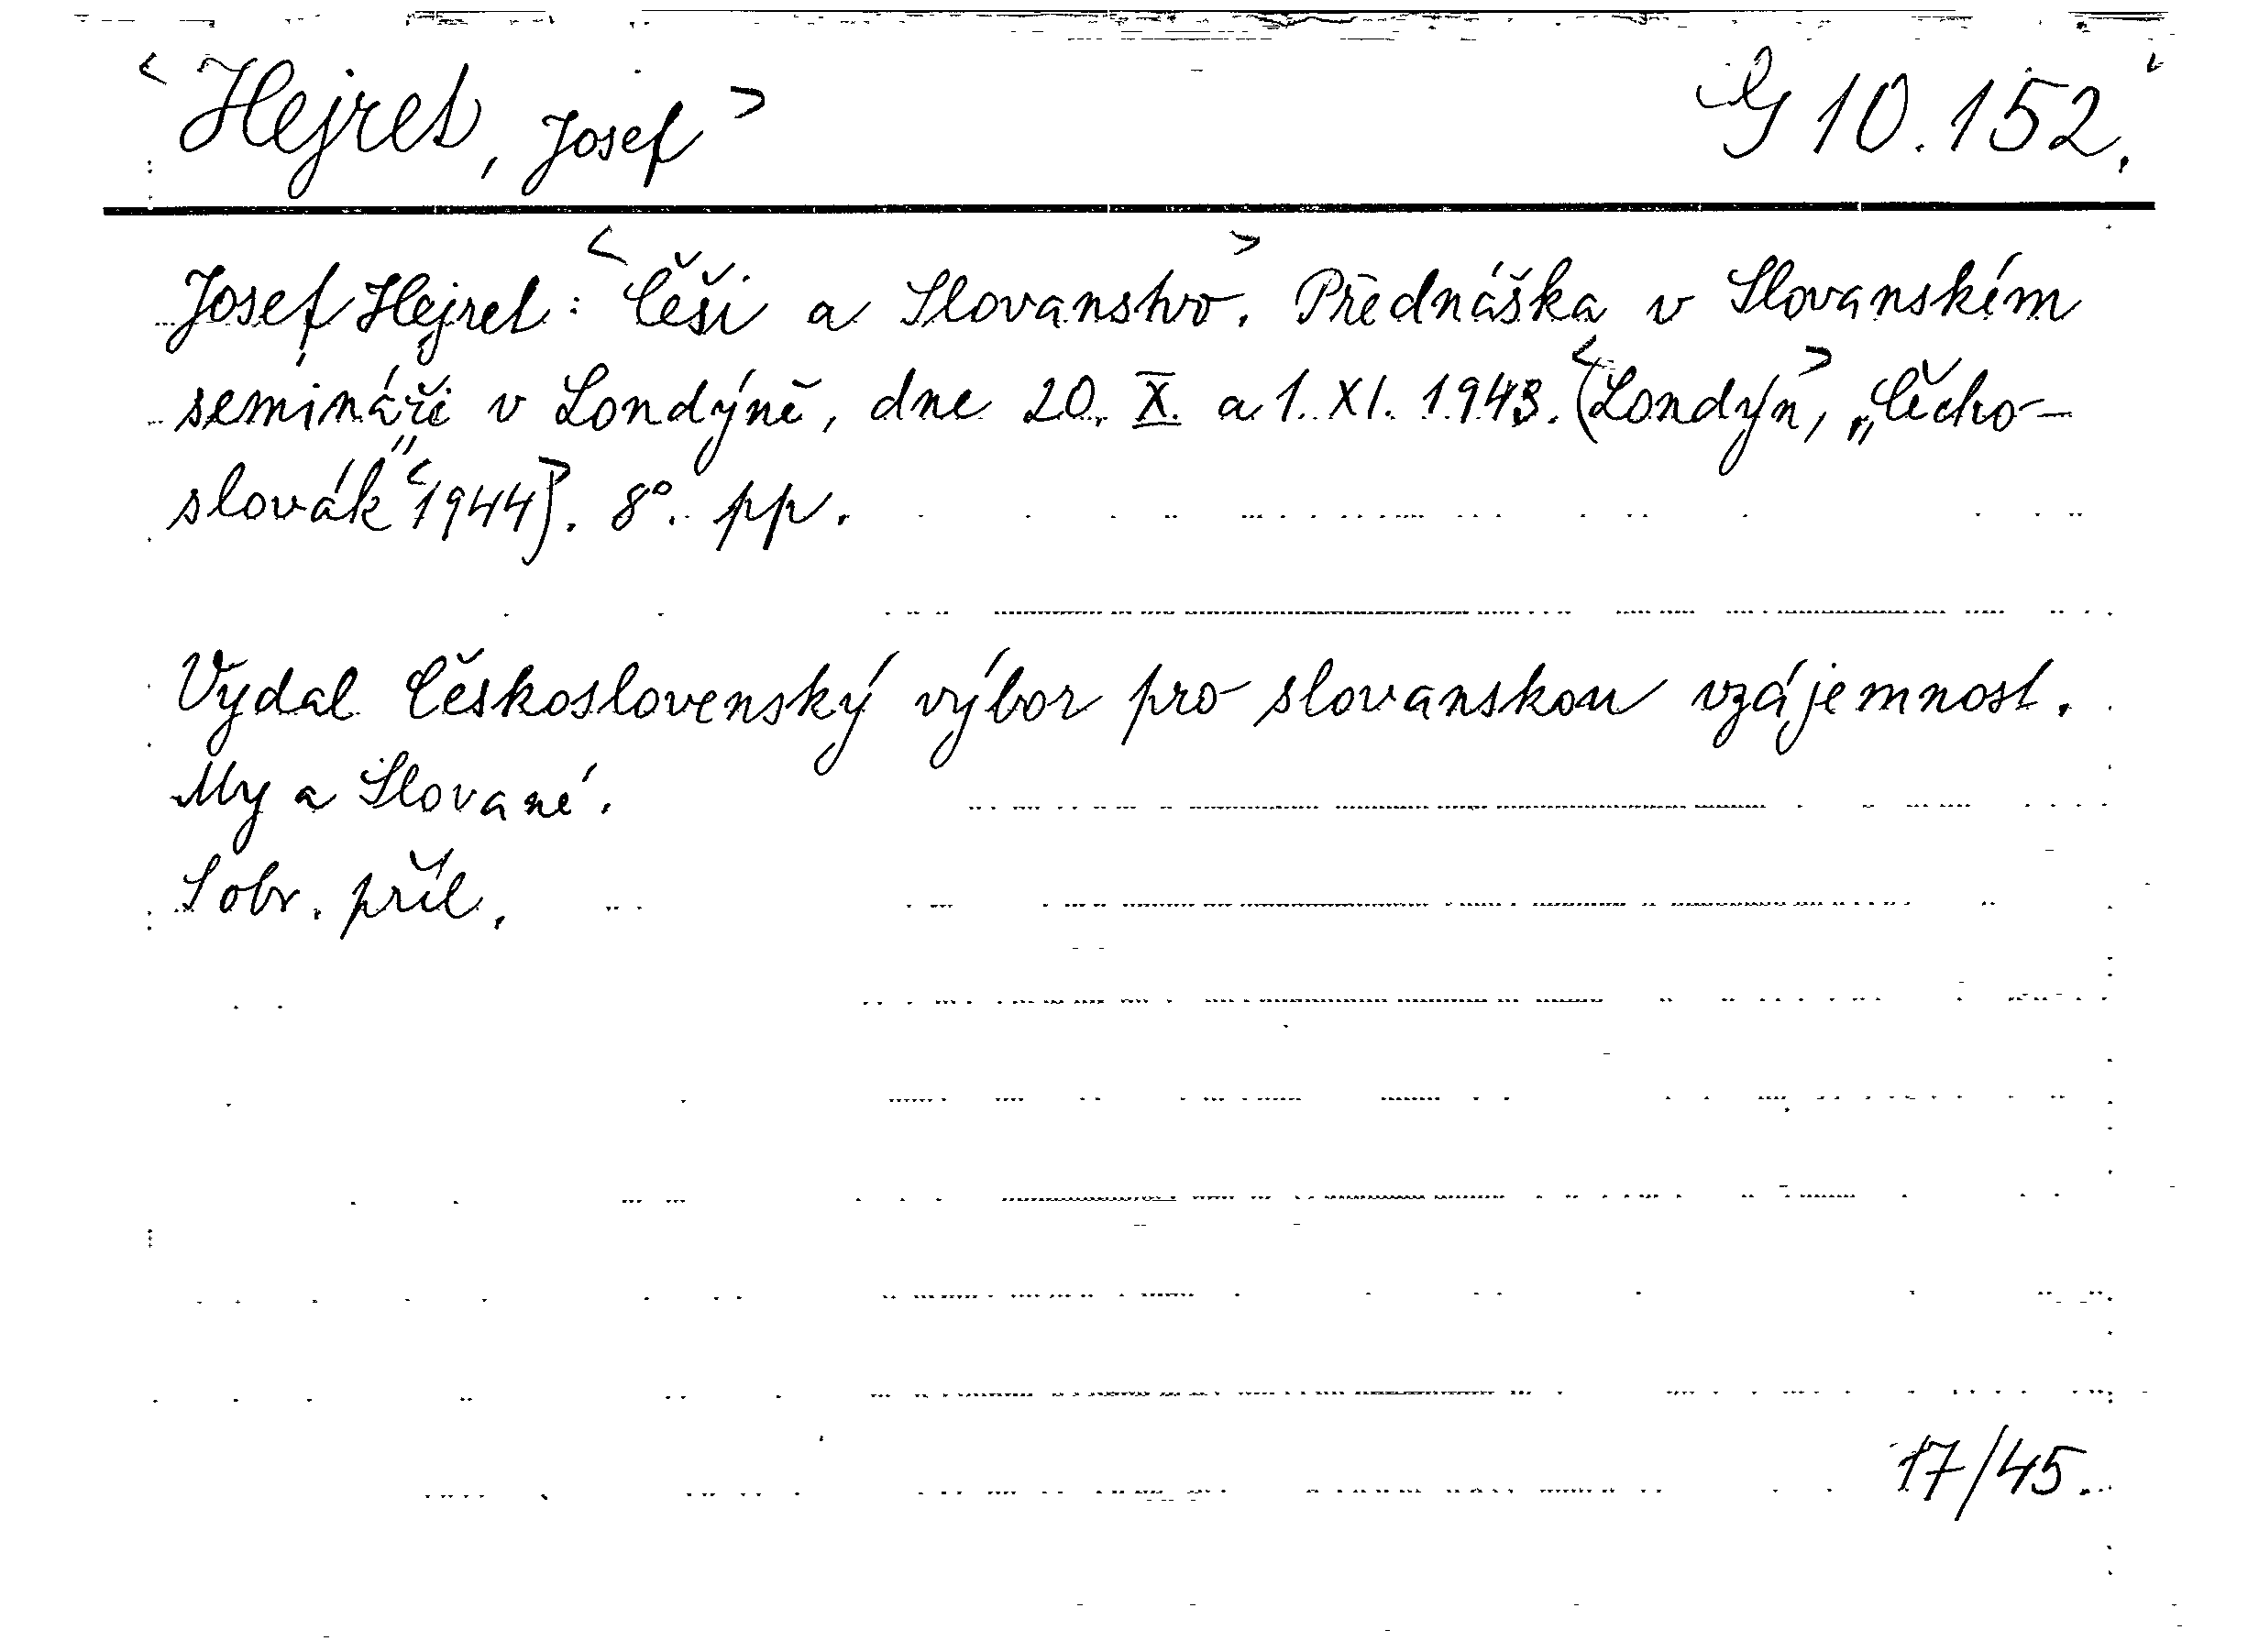 <Hejret, Josef> G 10.152.
Josef Hejret: <Češi a Slovanstvo>. Přednáška v Slovanském
semináři v Londýně, dne 20. X. a 1. XI. 1943. (<Londýn>, „Čecho-
slovák" <1944>). 8°. pp.
Vydal Československý výbor pro slovanskou vzájemnost.
My a Slované.
S obr. příl.
17/45.